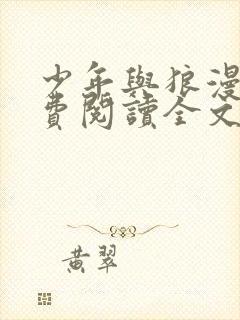 少年與狼漫
費閱讀全文
黃翠